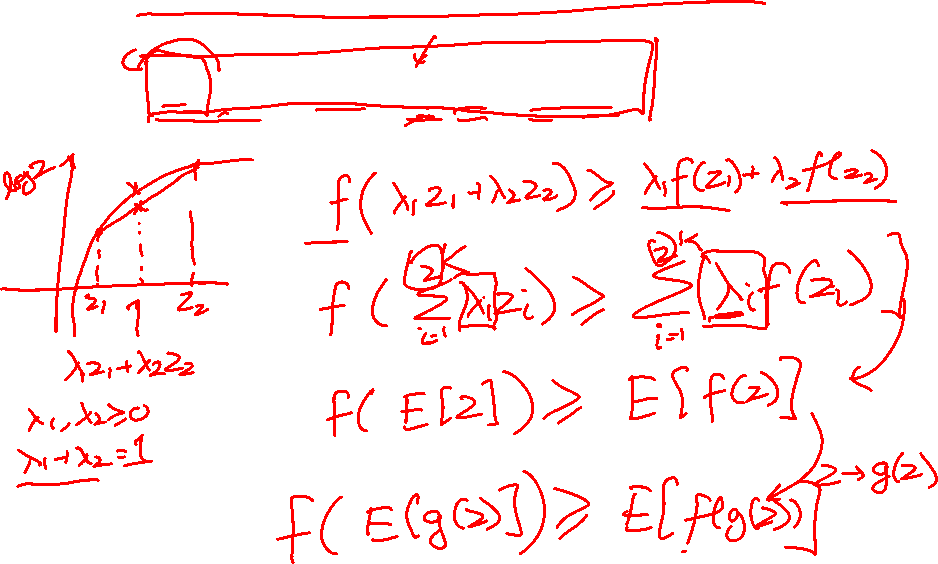 log z
z₁ z₂
λ₁z₁+λ₂z₂
λ₁, λ₂≥0
λ₁+λ₂=1
f(λ₁z₁+λ₂z₂)≥λ₁f(z₁)+λ₂f(z₂)
f(∑_{i=1}^{2^K} λᵢzᵢ)≥∑_{i=1}^{2^K} λᵢf(zᵢ)
f(E[z])≥E[f(z)]
z→g(z)
f(E[g(z)])≥E[f(g(z))]